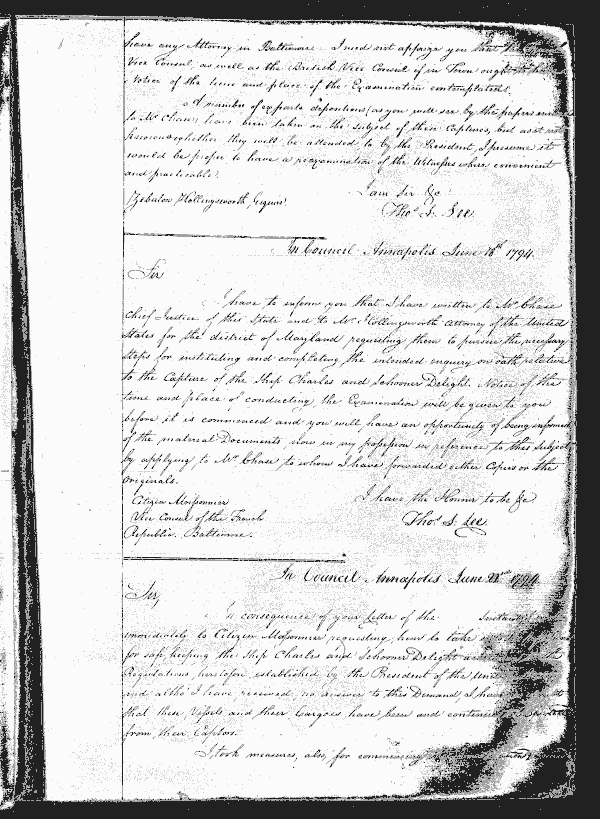 have any Attorney in Baltimore. I need not apprize you that the
Vice Consul, as well as the British Vice Consul if in Town ought to have
Notice of the time and place of the Examination contemplated.
A number of exparte depositions (as you will see by the papers
to Mr. Chase) have been taken on the subject of these Captures, but as it
whether they will be attended to by the President, I presume it
would be proper to have a reexamination of the Witnesses where convenient
and practicable.
I am Sir &c
Zebulon Hollingsworth, Esquire.
Thos. S. Lee.
In Council Annapolis June 16th 1794.
Sir
I have to inform you that I have written to Mr. Chase
Chief Justice of this State and to Mr. Hollingsworth Attorney of the United
States for the district of Maryland requesting them to pursue the necessary
Steps for instituting and completing the intended enquiry on oath relative
to the Capture of the Ship Charles and Schooner Delight. Notice of the
time and place of conducting the Examination will be given to you
before it is commenced and you will have an opportunity of being informed
of the material Documents now in my possession in reference to this subject
by applying to Mr. Chase to whom I have forwarded either Copies or the
Originals.
I have the Honour to be &c
Citizen Moissonnier
Vice Consul of the French
Thos. S. Lee
Republic. Baltimore.
In Council Annapolis June 22nd 1794
Sir,
In consequence of your Letter of the Instant
immediately to Citizen Moissonnier requesting him to take
for safe keeping the Ship Charles and Schooner Delight
Regulations heretofore established by the President of the
and altho I have received no answer to this Demand I have
that these Vessels and their Cargoes have been and continue
from their Captors.
I took measures, also, for commencing